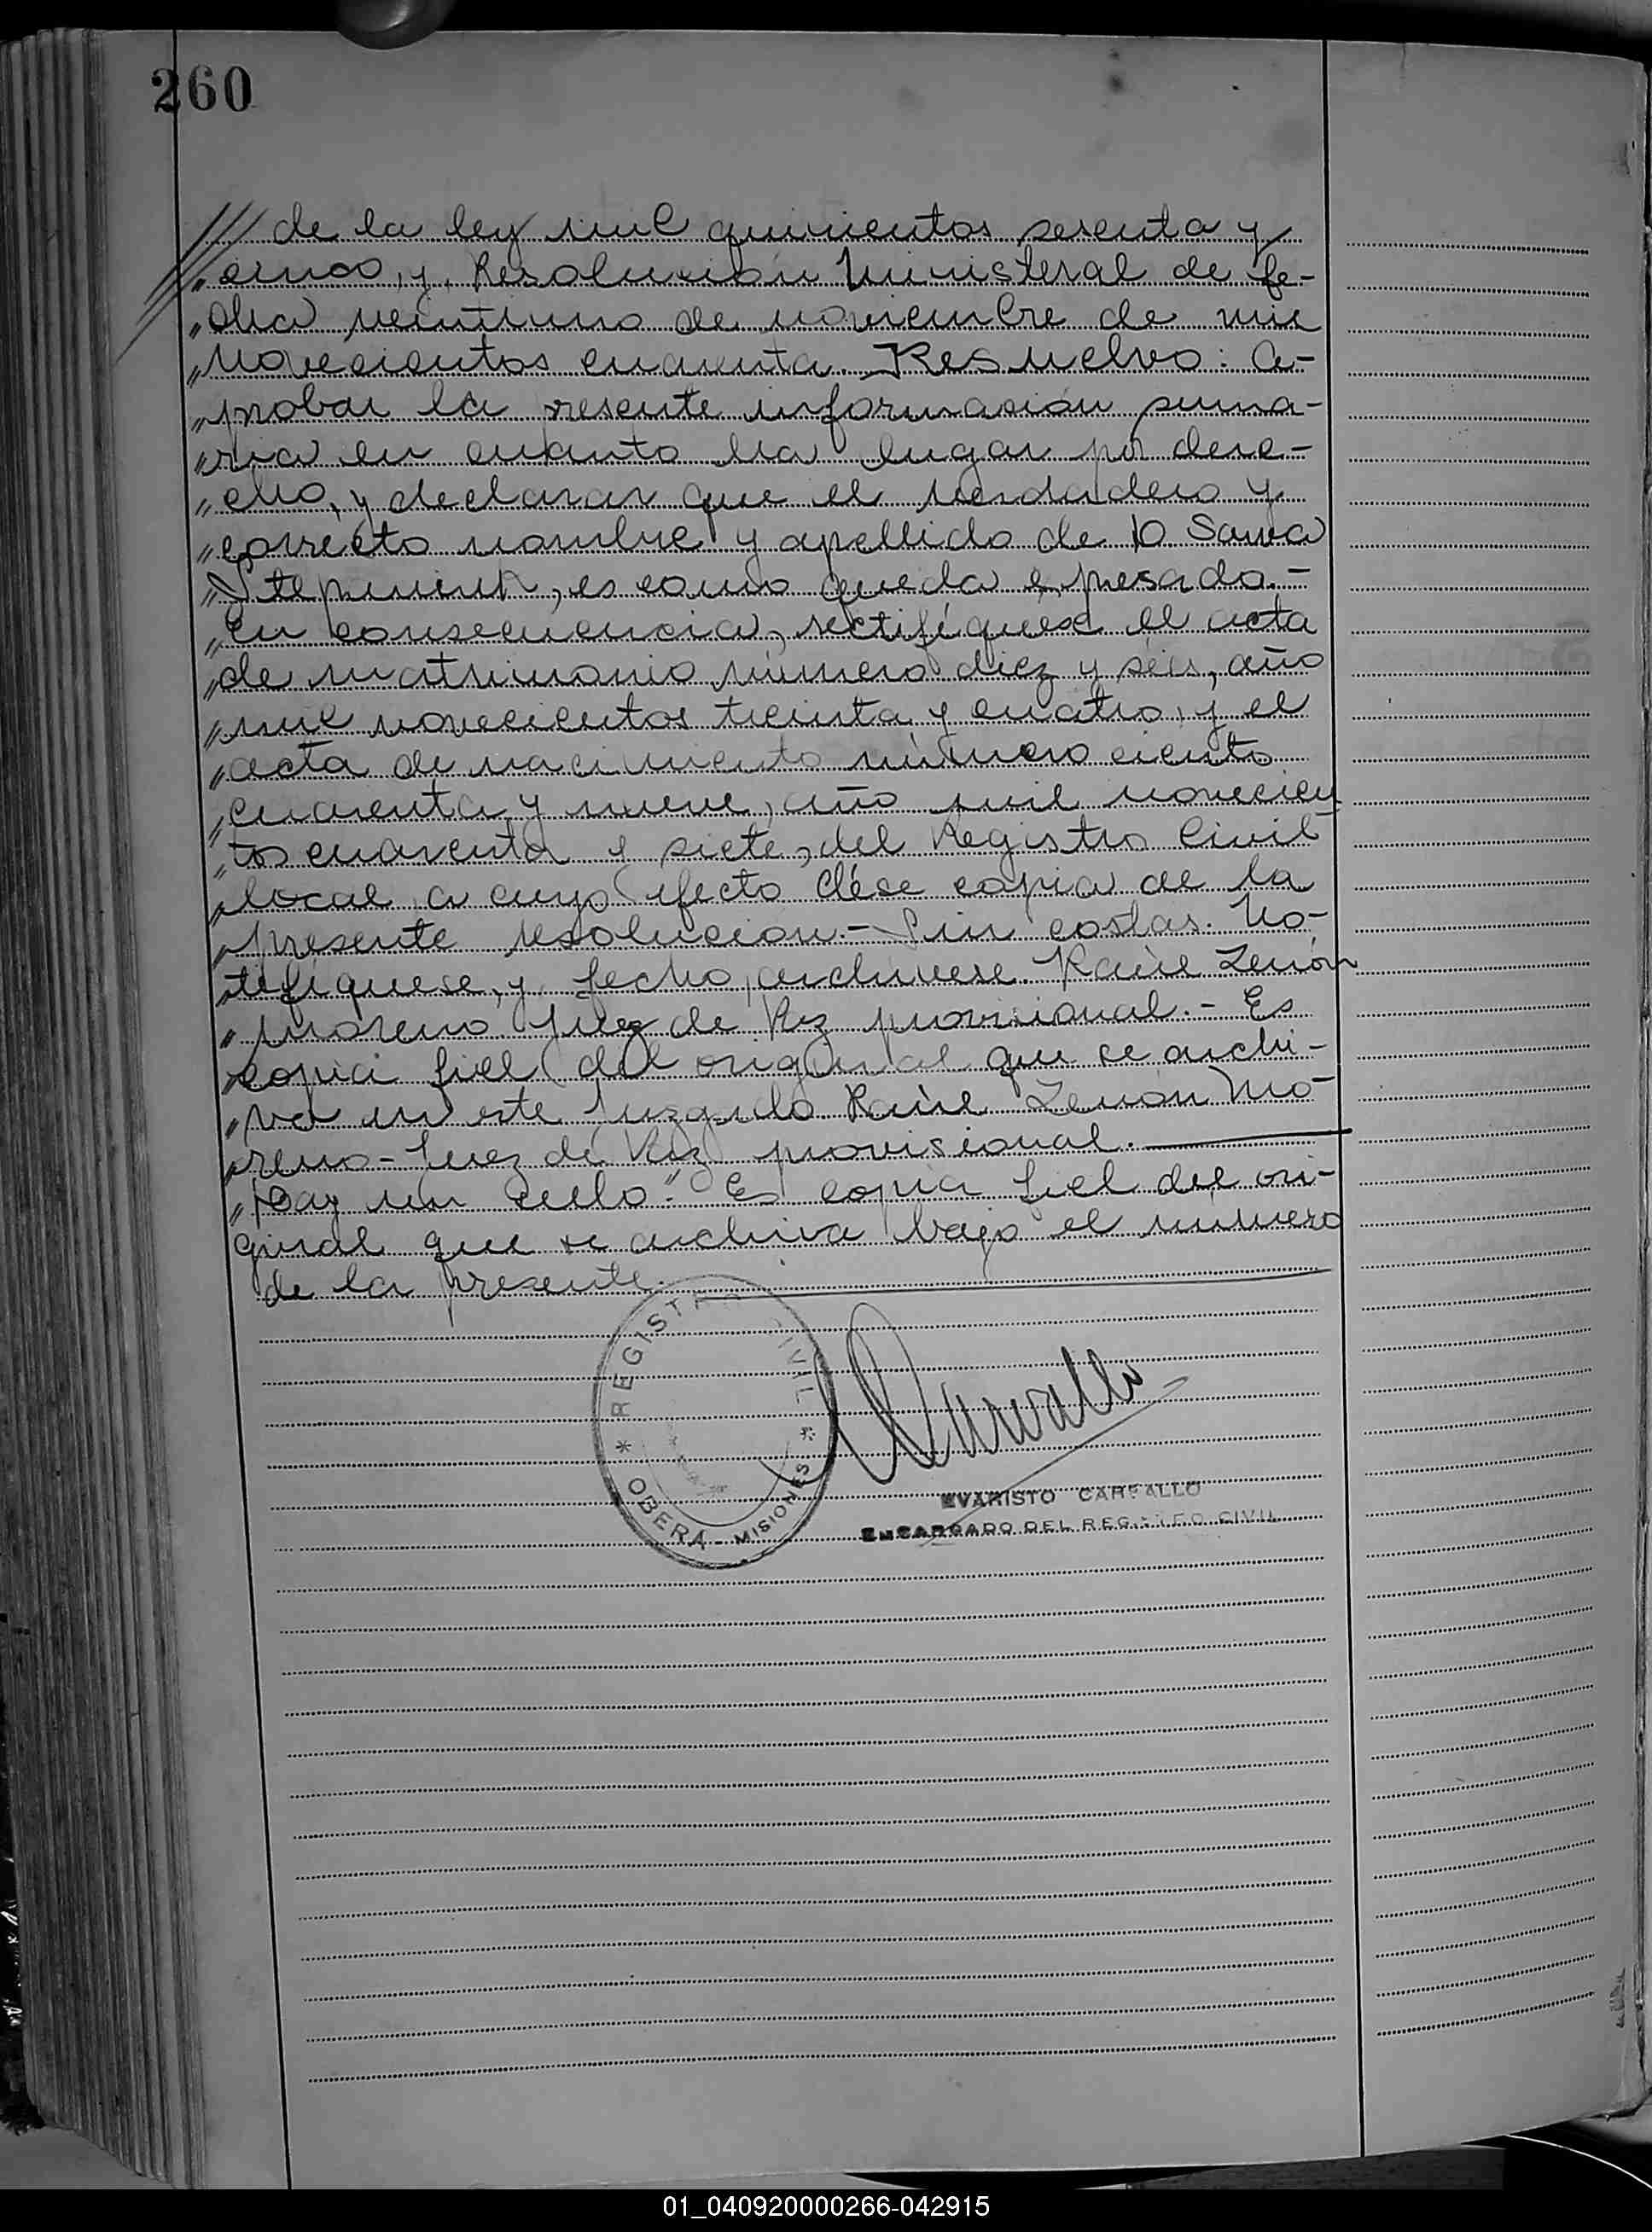 260
/// de la ley mil quinientos sesenta y
" cinco, y, Resolución Ministeral de fe-
" cha veintiuno de noviembre de mil
" novecientos cuarenta. Resuelvo: a-
" probar la presente información suma-
" ria en cuanto ha lugar por dere-
" cho, y declarar que el verdadero y
" correcto nombre y apellido de D Sawa
" es como queda expresado.-
" En consecuencia, rectifíquese el acta
" de matrimonio número diez y séis, año
" mil novecientos treinta y cuatro, y el
" acta de nacimiento número ciento
" cuarenta y nueve, año mil novecien
" tos cuarenta y siete, del Registro Civil
" local a cuyo efecto dése copia de la
" presente resolución.- Sin costas. No-
" tifíquese, y fecho, archívese. Raúl Zenón
" Moreno. Juez de Paz provisional.- Es
" copia fiel del original que se archi-
" va en este Juzgado Raúl Zenón Mo-
" reno- Juez de Paz provisional.
" Hay un sello." Es copia fiel del ori-
ginal que se archiva bajo el número
de la presente.
* REGISTRO CIVIL *
OBERÁ - MISIONES
Carvallo
EVARISTO CARVALLO
ENCARGADO DEL REGISTRO CIVIL
01_040920000266-042915